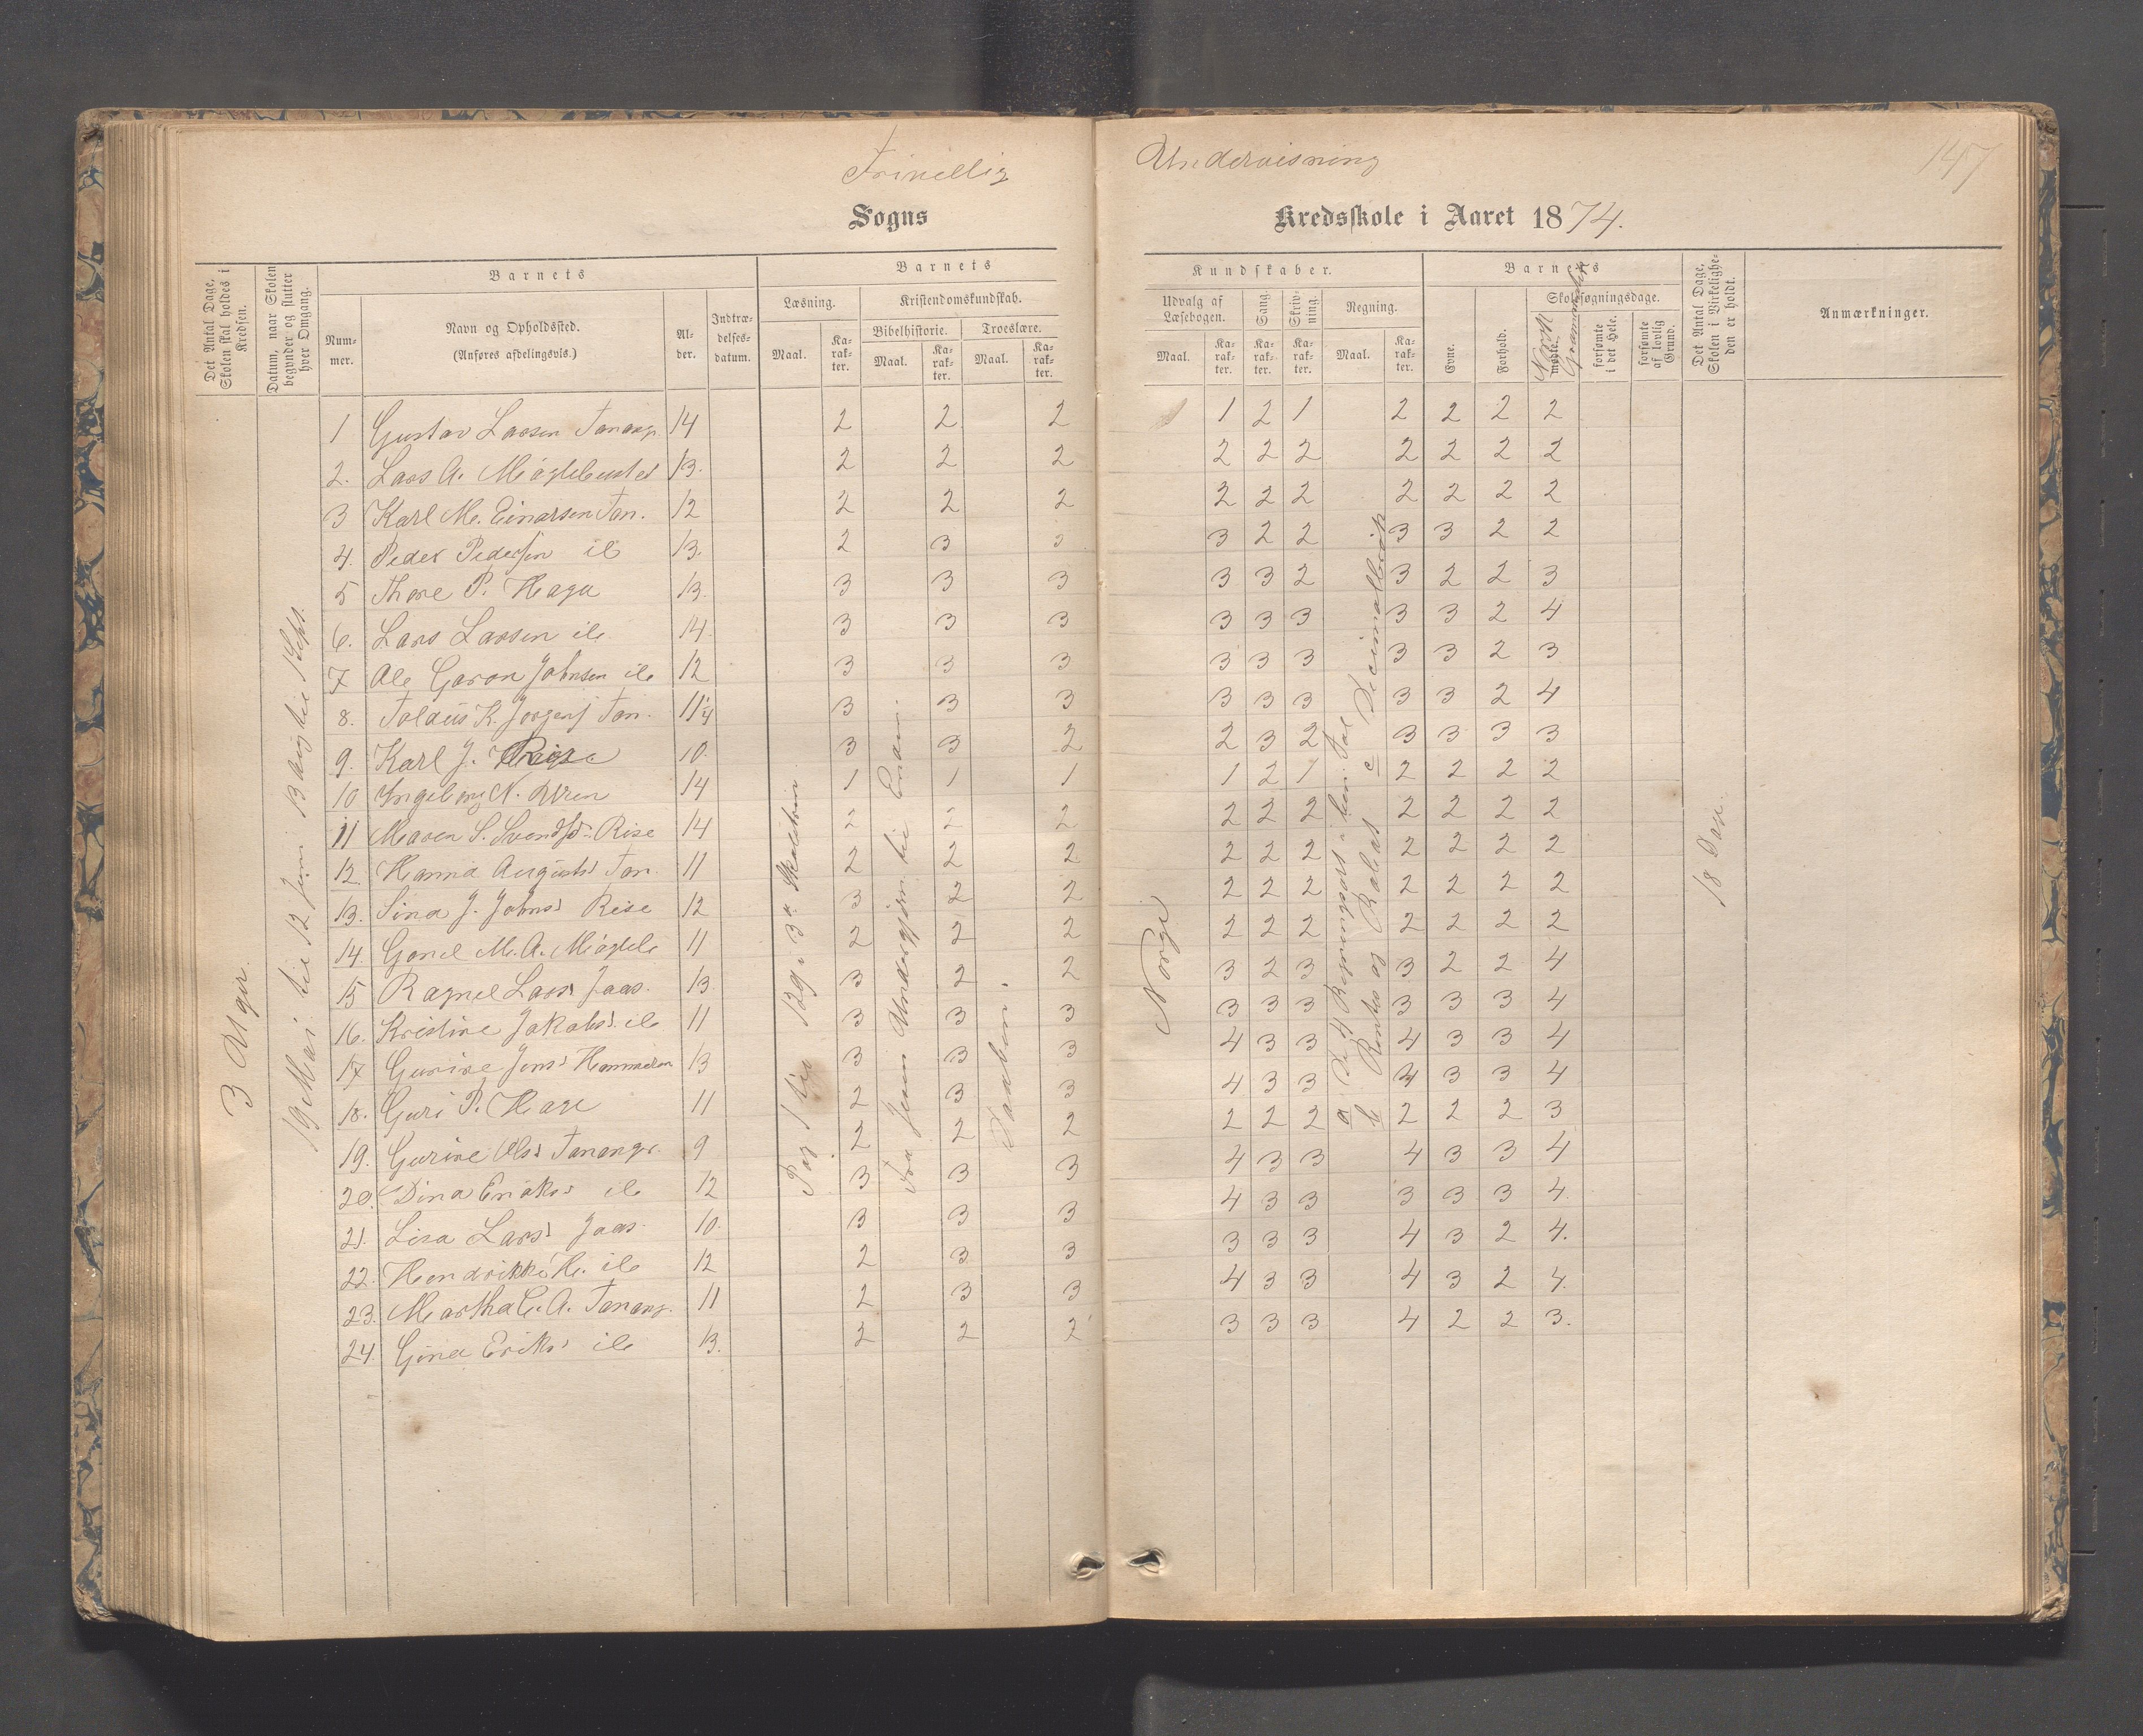 Frivillig Undervisning 147
Sogns Kredsskole i Aaret 1874.
Det Antal Dage, Skolen skal holdes i Kredsen.
Datum, naar Skolen begynder og slutter hver Omgang.
Barnets
Nummer.
Navn og Opholdssted.
(Anføres afdelingsvis.)
Alder.
Indtrædelsesdatum.
Barnets
Læsning.
Maal.
Karakter.
Kristendomskundskab.
Bibelhistorie.
Maal.
Karakter.
Troeslære.
Maal.
Karakter.
Kundskaber.
Udvalg af Læsebogen.
Maal.
Karakter.
Sang.
Karakter.
Skrivning.
Karakter.
Regning.
Maal.
Karakter.
Barnets
Evne.
Forhold.
Skolesøgningsdage.
mødte.
Norsk
forsømte i det Hele.
forsømte af lovlig Grund.
Det Antal Dage, Skolen i Virkeligheden er holdt.
Anmærkninger.
3 Uger.
19 Mai til 12 Juni 13 Aug til 1 Sept.
1 Gustav Larsen Tanang. 14 2 2 2 1 2 1 2 2 2 2
2. Lars A. Mágleb 13. 2 2 2 2 2 2 2 2 2 2
3 Karl M. Einarsen Tan. 12 2 2 2 2 2 2 2 2 2 2
4. Peder Pedersen ib 13. 2 3 3 3 2 2 3 3 2 2
5 Thore P. Haga 13. 3 3 3 3 3 2 3 2 2 3
6. Lars Larsen ib 14. 3 3 3 3 3 3 3 3 2 4
7 Ole Johnsen ib 12 3 3 3 3 3 3 3 3 2 3
8. K. Jørgens Tan. 11 1/4 3 3 3 3 3 3 3 3 2 4
9. Karl J. Rise 10. 3 3 2 2 3 2 3 3 3 3
10 Ingeborg N. 14 1 1 1 1 2 1 2 2 2 2
11 Maren S. Svendsd. Rise 14 2 2 2 2 2 2 2 2 2 2
12. Hanna Augustsd Tan. 11 2 2 2 2 2 2 2 2 2 2
13. Sina J. Johnsd Rise 12 3 2 2 2 2 2 2 2 2 2
14. Gonil M. A. Mágleb 11 2 2 2 2 2 2 2 2 2 2
15 Ragnil Larsd Jaas. 13 3 2 2 3 2 3 3 2 2 4
16. Kristine Jakobsd. ib 11 3 3 3 3 3 3 3 3 3 4
17 Gurine Jensd Hammeren 13 3 3 3 4 3 3 4 3 3 4
18. Guri P. Hage 11 2 3 3 4 3 3 3 3 4
19. Gurine Olsd Tanangr. 9 2 2 2 2 2 2 2 2 2 3
20. Dina Eriksd ib 12 3 3 3 4 3 3 4 3 3 4
21. Lisa Larsd Jaas. 10. 3 3 3 4 3 3 3 3 3 4
22. Hendrikke H. ib 12 2 3 3 3 3 3 4 3 2 4.
23. Martha C. A. Tanang. 11 2 3 3 4 3 3 4 3 2 4.
24. Gina Eriksd ib 13. 2 2 2 3 3 3 4 2 2 3.
Pag 1 til 129 i 3
Fra Jesu Undergjern. til Enden.
Daaben.
Norge
a De 4 Regningsart. i hen. Tal
b Rentes og Rabat c Decimalbrøk
18 Dage.